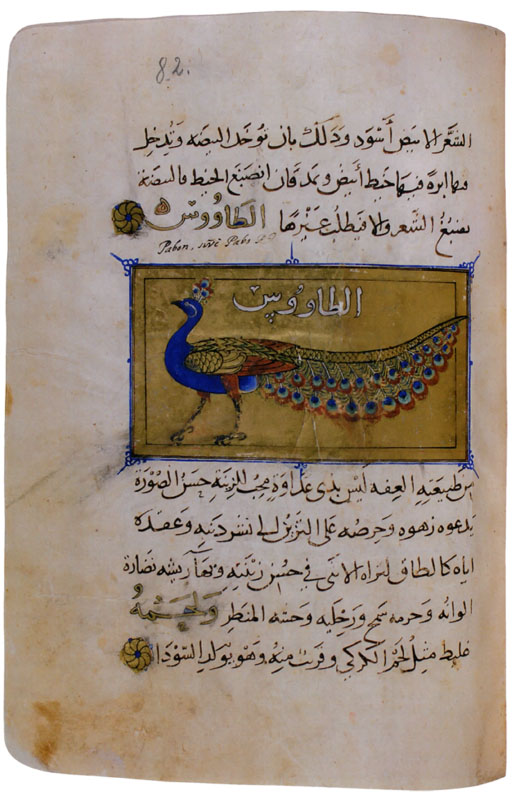 82.
الشعر الابيض أسود وذلك بان توخذ البيضه وتدخل
فيها ابرة فيها خيط أبيض وتمد فان انصبغ الخيط فالبيضة
تصبغ الشعر والا فيطلب غيرها الطاووس
Pabon, sive Pabo
الطاووس
من طبيعته العفه ليس بذي عداوة محب للزينة حسن الصورة
يدعوه زهوه وحرصه على التزين الى نشر ذنبه وعقده
اياه كالطاق لتراه الانثى في حسن زينته وبهآ ريشه نضارة
الوانه وحرمه ورجليه المنظر ولحمه
غليظ مثل لحم الكركي وقريب منه وهو يولد السودا